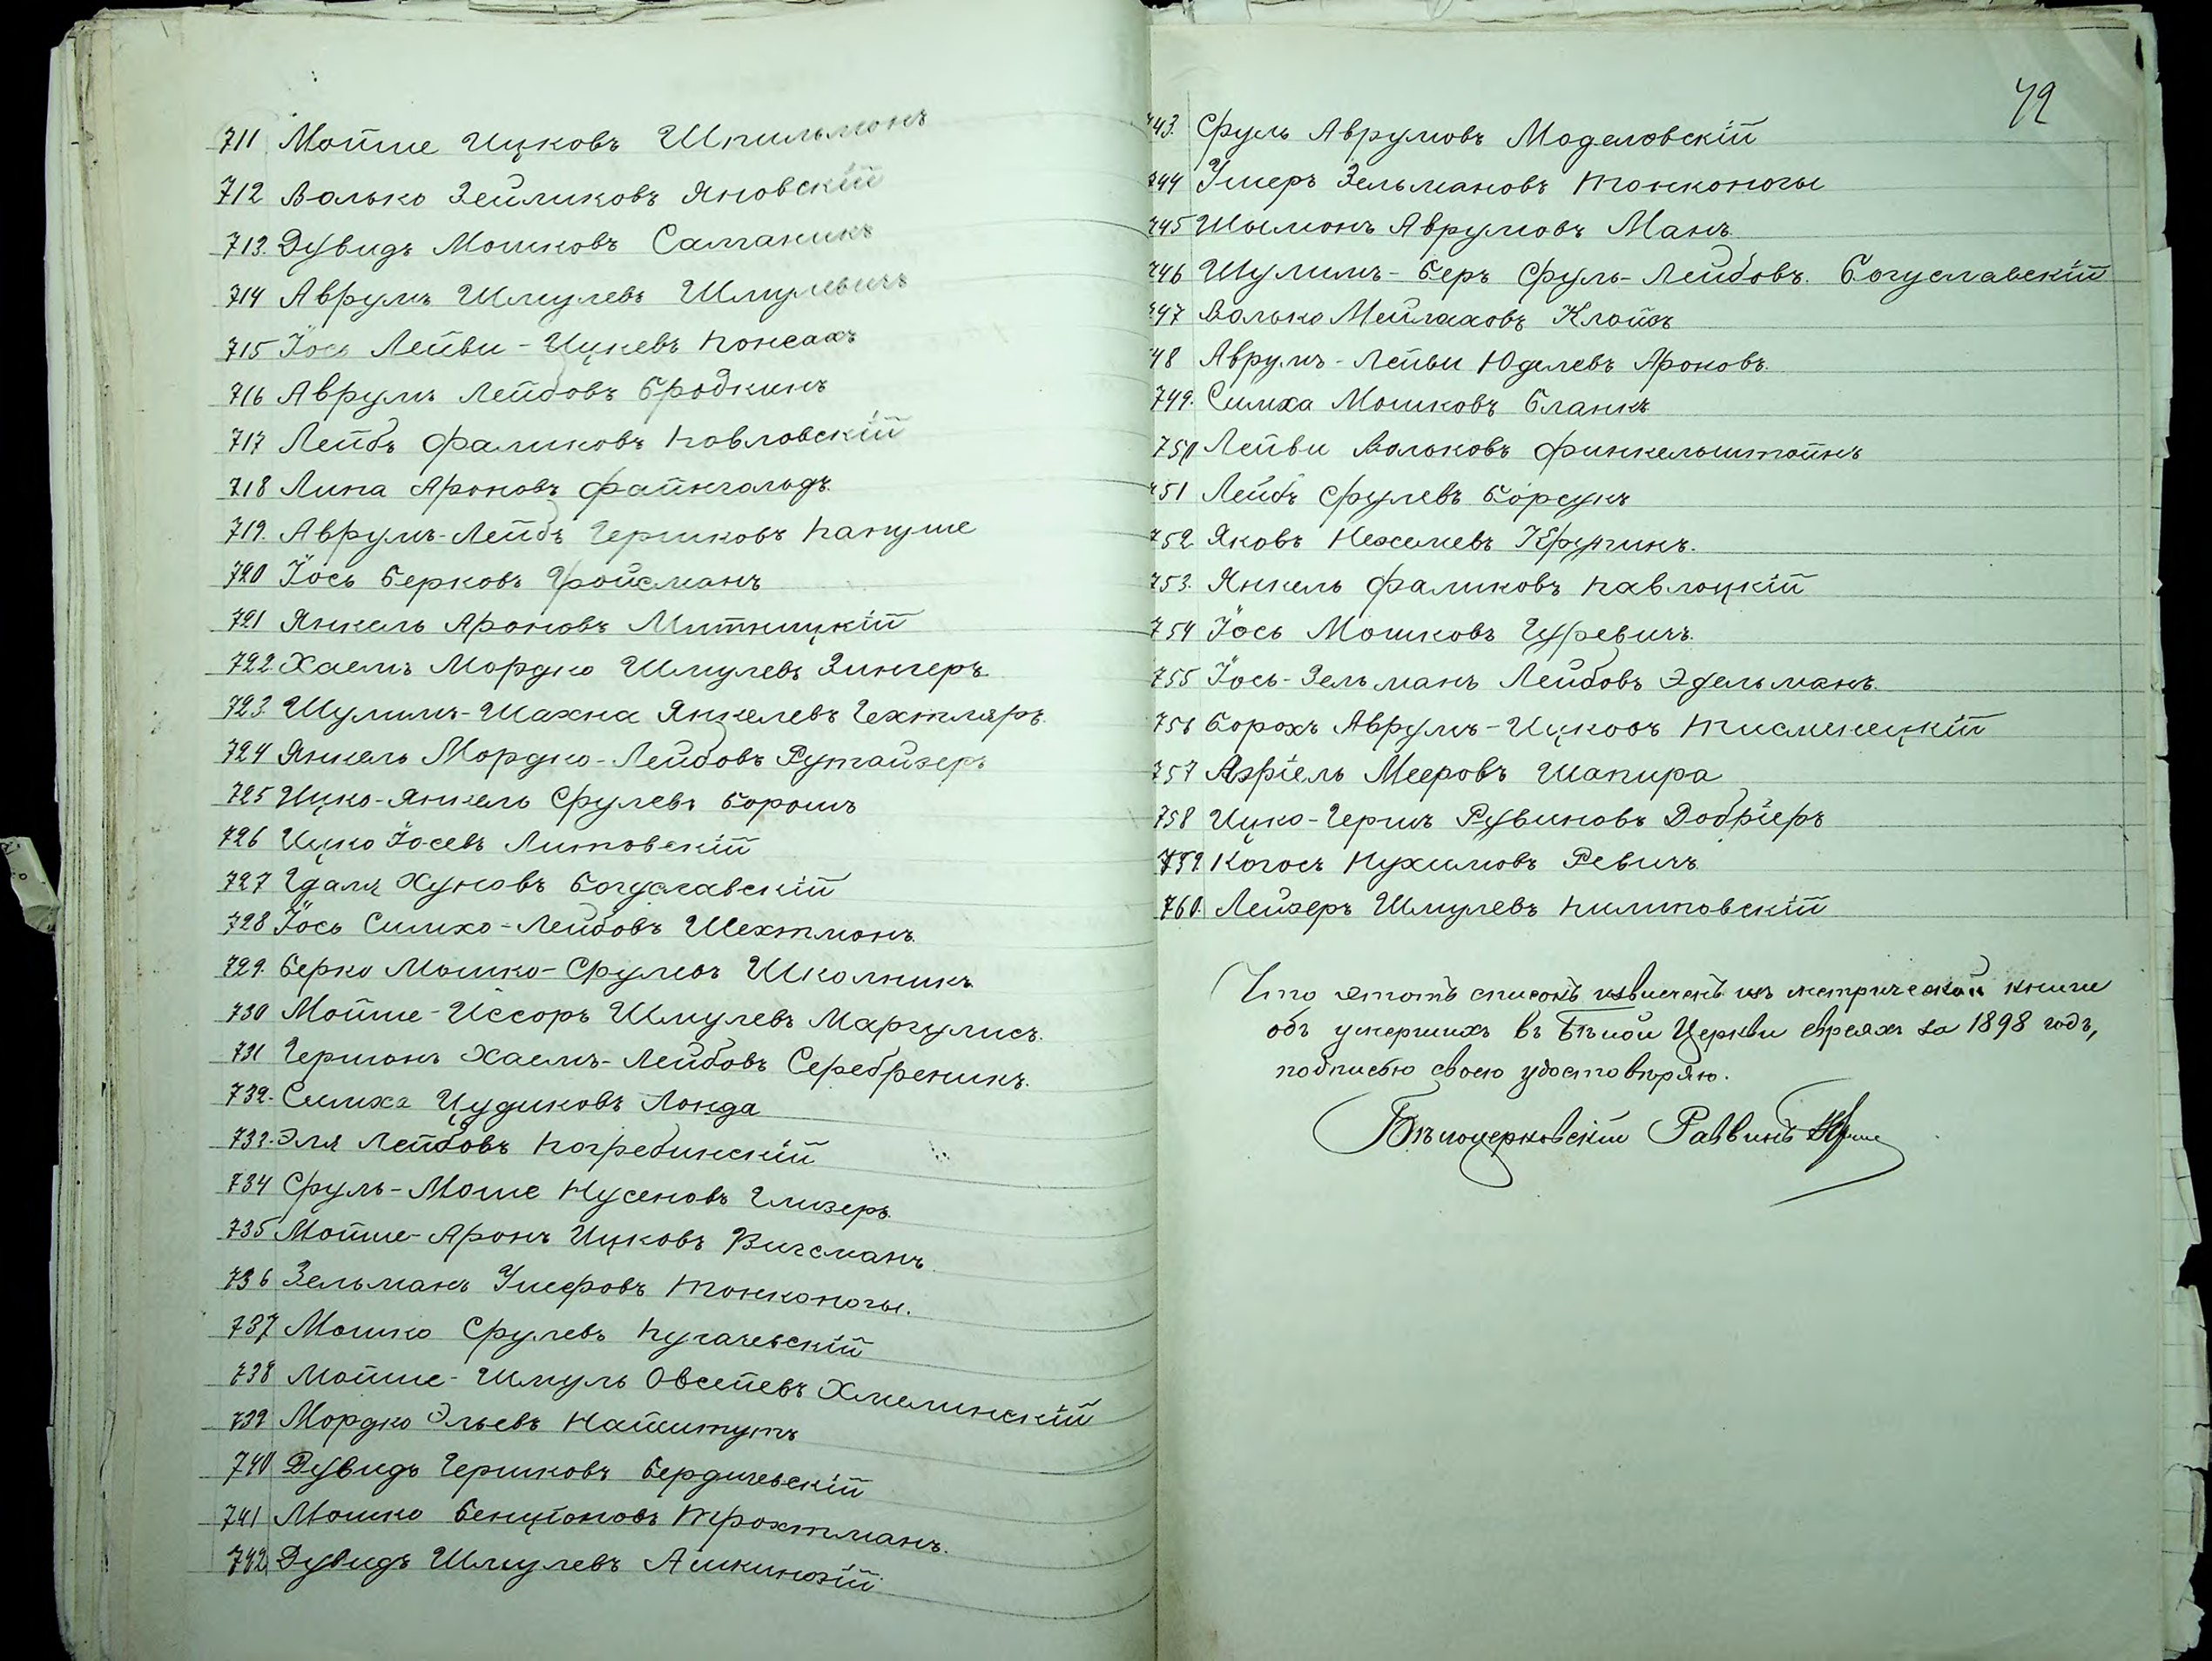 711 Мойше Ицковъ Шпильманъ
712 Волько Зейликовъ Яновскій
713. Дувидъ Мошковъ Салганикъ
714 Аврумъ Шмулевъ Шмулевичъ
715 Іось Лейви-Ицкевъ
716 Аврумъ Лейбовъ Бродкинъ
717 Лейбъ Фаликовъ Повловскій
718 Липа Ароновъ Файнгольдъ.
719. Аврумъ-Лейбъ Гершковъ Капуше
720 Іось Берковъ Гройсманъ
721 Янкель Ароновъ Митницкій
722. Хаемъ Мордко Шмулевъ Зингеръ
723. Шулимъ-Шахна Янкелевъ Гехтляръ.
724 Янкель Мордко-Лейбовъ Рутгайзеръ
725 Ицко-Янкель Срулевъ Борошъ
726 Ицко Іосевъ Литовскій
727 Гдаля Хуновъ Богуславскій
728 Іось Симхо-Лейбовъ Шехтманъ.
729. Берко Мошко-Срулевъ Школникъ
730 Мойше-Иссоръ Шмулевъ Маргулисъ.
731 Германъ Хаемъ-Лейбовъ Серебреникъ.
732. Симха Цудиковъ Лонда
733. Эля Лейбовъ Погребинскій
734 Сруль-Моше Нусеновъ Глизеръ
735 Мойше-Аронъ Ицковъ Вигсманъ
736 Зельманъ Ушеровъ Тонконогы.
737 Мошко Срулевъ Пугачевскій
738 Мойше-Шмуль Овсеевъ Хмелинскій
739 Мордко Эльевъ Найштутъ
740 Дувидъ Гершковъ Бердичевскій
741 Мошко Бенціоновъ Трохтманъ.
742. Дувидъ Шмулевъ Ашкинозій
72
743. Сруль Аврумовъ Моделовскій
744 Ушеръ Зельмановъ Тонконогы
745 Шымонъ Аврумовъ Манъ
746 Шулимъ-Беръ Сруль-Лейбовъ. Богуславскій
747 Волько Мейлаховъ
748 Аврумъ-Лейви Юделевъ Ароновъ.
749. Симха Мошковъ Бланкъ
750 Лейви Вольковъ Финкельштойнъ
751 Лейбъ Срулевъ Борсукъ
752 Яковъ Нехемевъ
753. Янкель Фаликовъ Павлоцкій
754 Іось Мошковъ Гуревичъ.
755 Іось-Зельманъ Лейбовъ Эдельманъ.
756 Борохъ Аврумъ-Ицковъ Тисменецкій
757 Азріель Мееровъ Шапира
758 Ицко-Гершъ Рувиновъ Добріеръ
759. Когосъ Нухимовъ Ревичъ
760. Лейзеръ Шмулевъ Пилиповскій
Что этотъ списокъ извлеченъ изъ метрической книги
объ умершихъ въ Бѣлой Церкви евреяхъ за 1898 годъ,
подписью своею удостовѣряю.
Бѣлоцерковскій Раввинъ